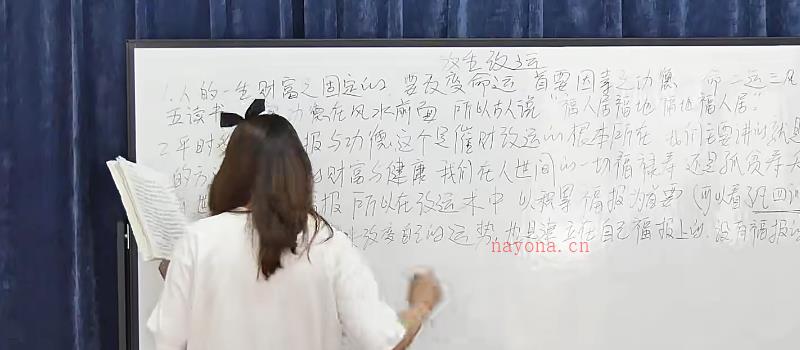 放生改运
1.人的一生财富是固定的 要改变命运 首要因素是功德 命二运三风
五读书 功德在风水前面 所以古人说“福人居福地 福地福人居”
2.平时 报与功德 这个是催财改运的根本所在 我们主要讲的就是
的方 财富与健康 我们在人世间的一切福禄寿 还是孤贫寿夭
世 报 所以在改运术中 以积累福报为首要 (可以看了凡四训
改变自己的运势 也是建立在自己福报上的 没有福报
nayona.cn